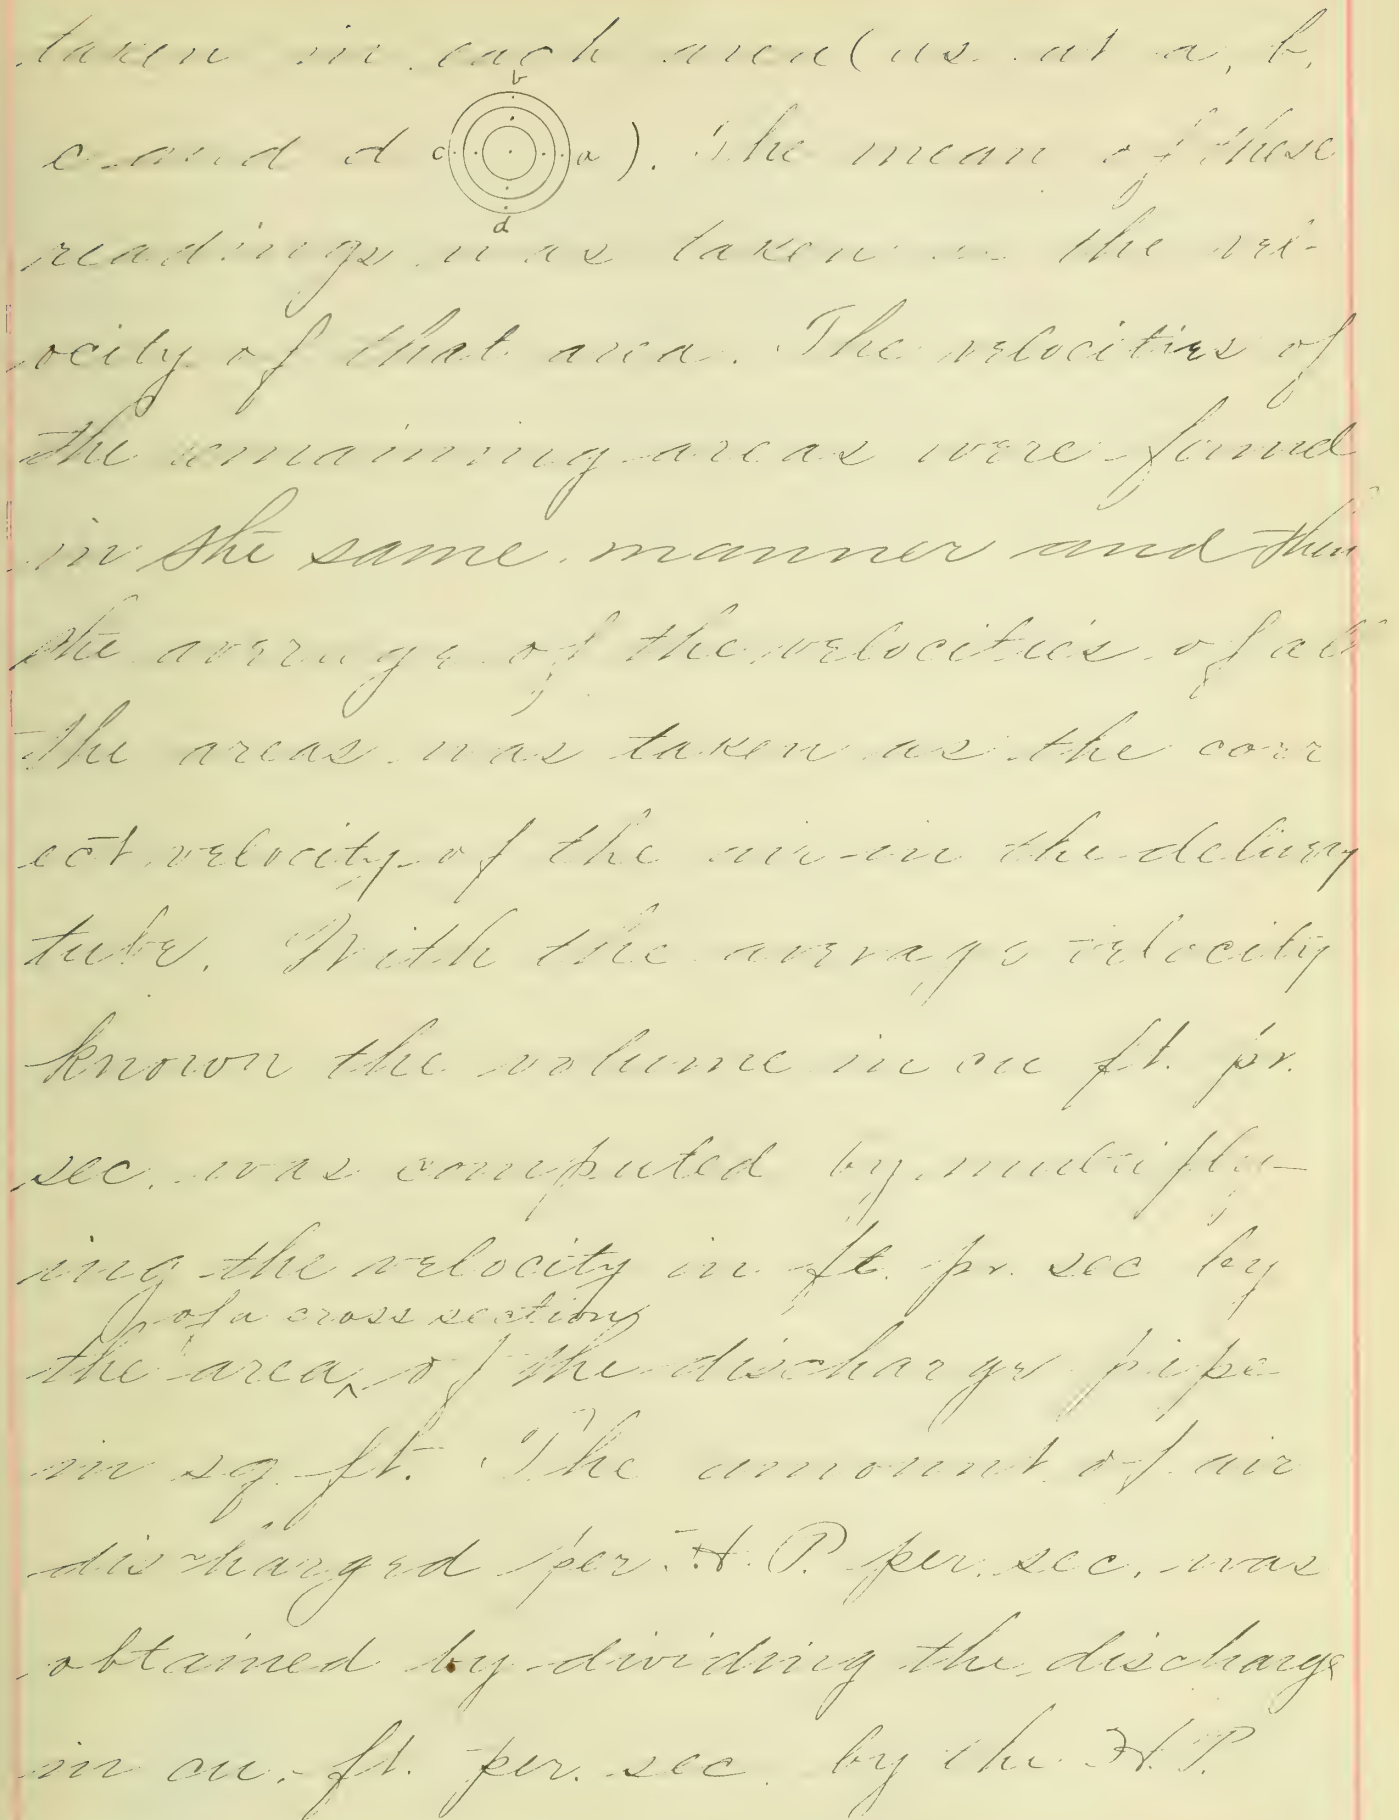 taken in each area (as at a, b,
c and d b c a d ). The mean of these
readings was taken as the vel-
ocity of that area. The velocities of
the remaining areas were found
in the same manner and then
the average of the velocities of all
the areas was taken as the corr
ect velocity of the air in the delivery
tube. With the average velocity
known the volume in cu ft. pr.
sec. was computed by multiply-
ing the velocity in ft. pr. sec by
of a cross section
the area ^ of the discharge pipe
in sq. ft. The amount of air
discharged per. H. P. per. sec. was
obtained by dividing the discharge
in cu. ft. per. sec. by the H. P.